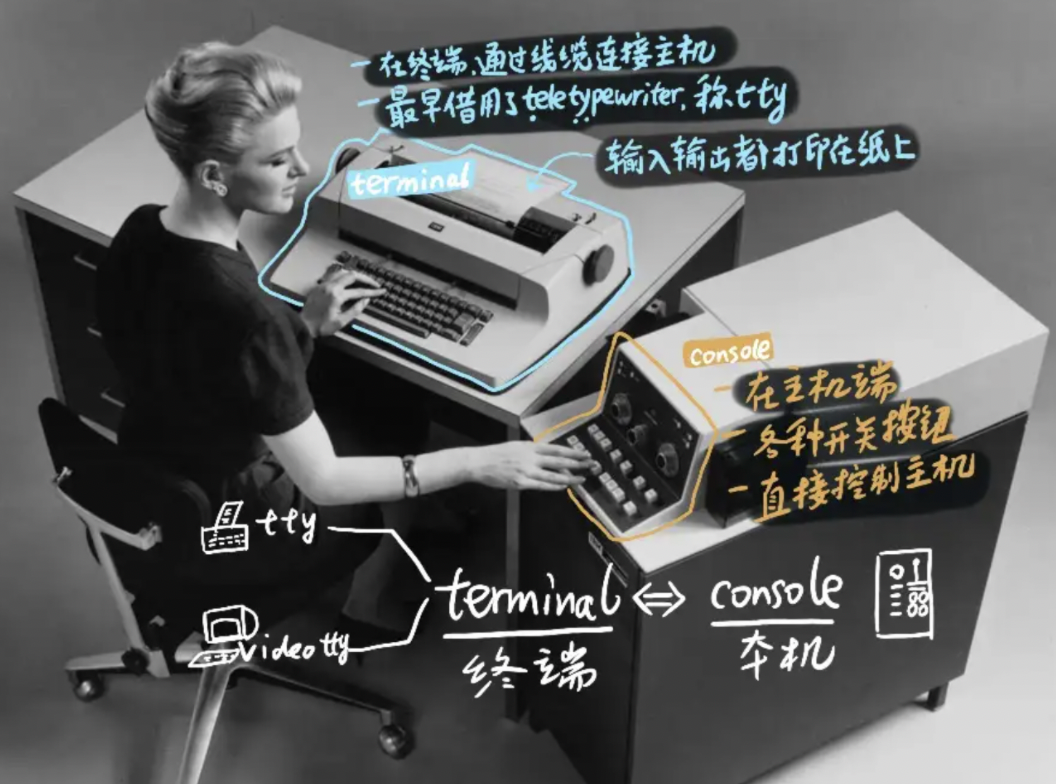 - 在终端、通过线缆连接主机
- 最早借用了teletypewriter, 称tty
输入输出都打印在纸上
terminal
console
- 在主机端
- 各种开关按钮
- 直接控制主机
tty
videotty
terminal ⇔ console
终端
本机